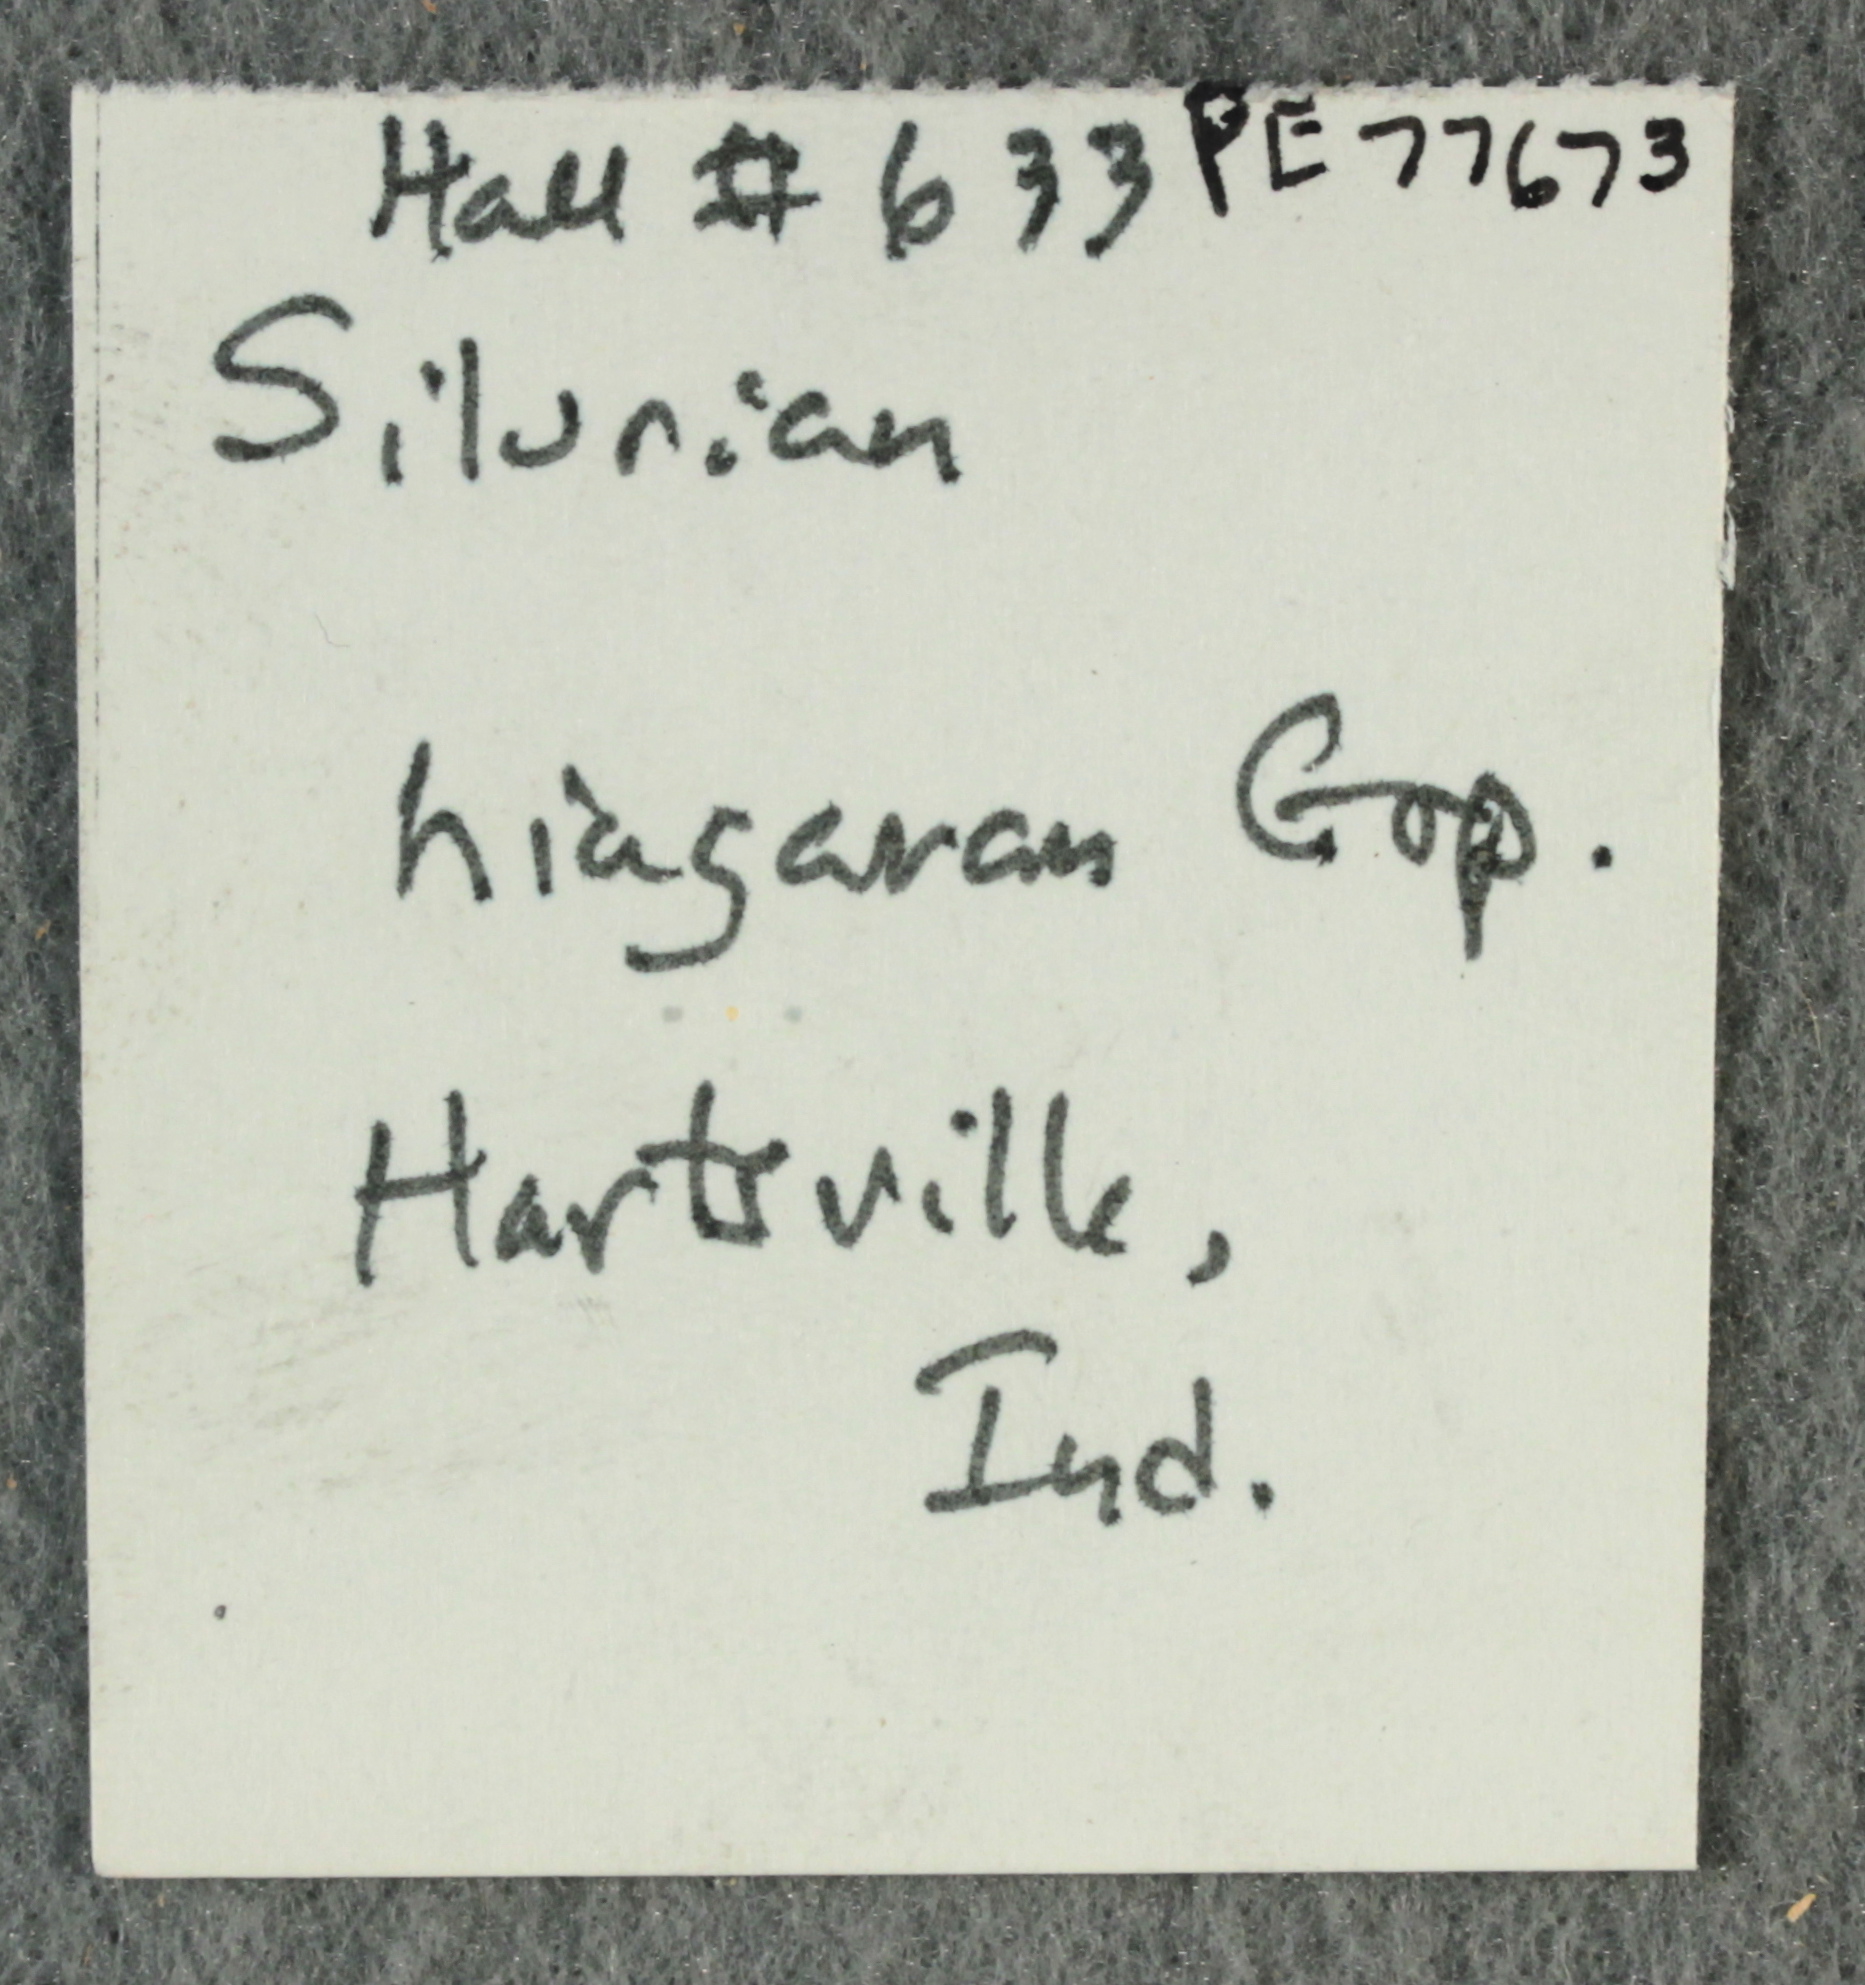 Hall # 633 PE 77673
Silurian
niagaran Grp.
Hartsville,
Ind.